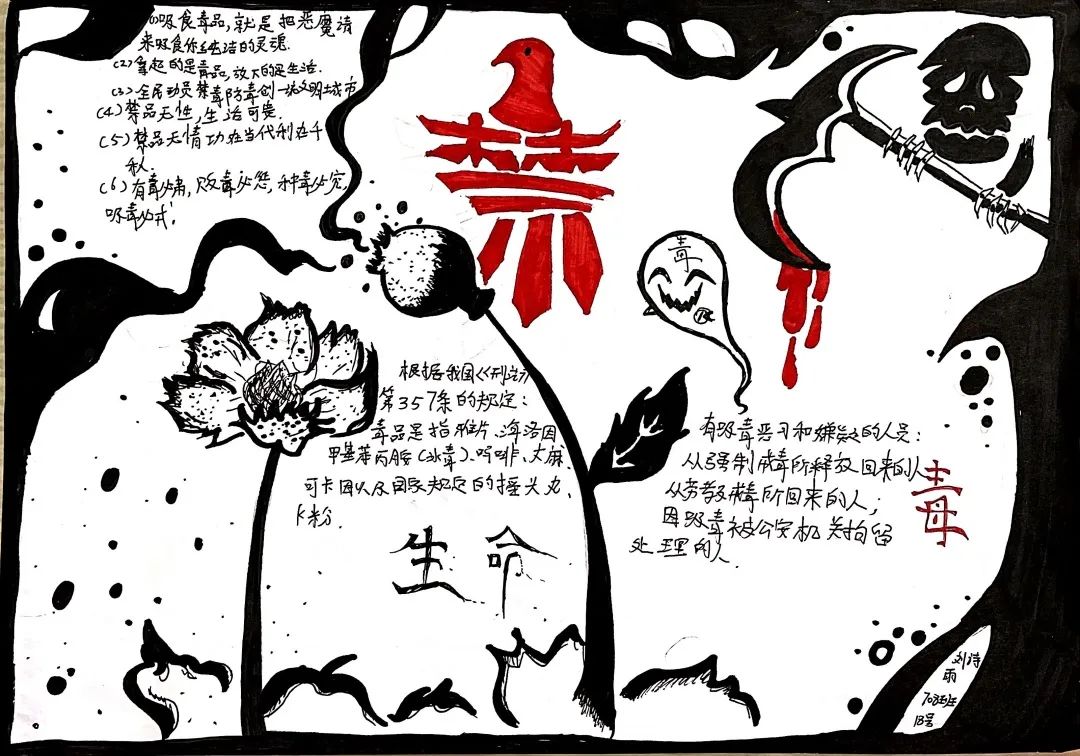 (1)吸食毒品,就是把恶魔请
来吸食你纯洁的灵魂.
(2)拿起的是毒品,放下的是生活.
(3)全民动员禁毒防毒创一流文明城市
(4)禁品无性,生活可贵.
(5)禁品无情功在当代利在千
秋.
(6)有毒必肃,贩毒必惩,种毒必究,
吸毒必戒.
禁
毒
根据我国《刑法》
第357条的规定:
毒品是指鸦片、海洛因
甲基苯丙胺(冰毒)、吗啡、大麻、
可卡因以及国家规定的摇头丸、
K粉.
生命
有吸毒恶习和嫌疑的人员:
从强制戒毒所释放回来的人
从劳教戒毒所回来的人;
因吸毒被公安机关拘留
处理的人.
毒
刘诗
雨
708班
13号